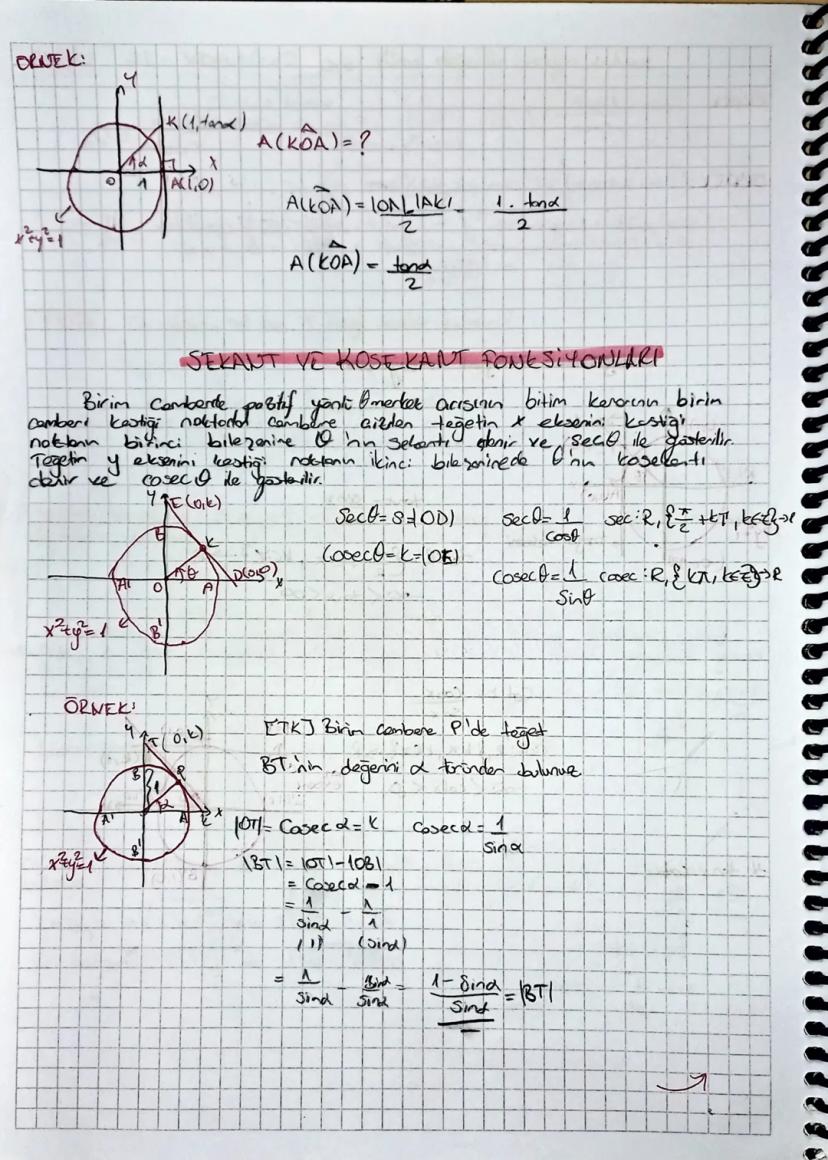 ÖRNEK:
y
K(1, tanα)
α
x
O
1
A(1,0)
x²+y²=1
A(KOA)=?
A(KOA)=|OA|.|AK|/2 = 1.tanα/2
A(KOA)= tanα/2
SEKANT VE KOSEKANT FONKSİYONLARI
Birim Çemberde pozitif yönlü θ merkez açısının bitim kenarının birim
çemberi kestiği noktadan çembere çizilen teğetin x eksenini kestiği
noktanın birinci bileşenine θ'nın sekantı denir ve secθ ile gösterilir.
Teğetin y eksenini kestiği noktanın ikinci bileşenine de θ'nın kosekantı
denir ve cosecθ ile gösterilir.
y
E(0,k)
B
K
θ
A'
O
A
x
B'
x²+y²=1
Secθ= S=|OD|
secθ=1/cosθ
sec:R\{π/2+kπ, k∈Z}→R
Cosecθ=K=|OE|
cosecθ=1/sinθ
cosec:R\{kπ, k∈Z}→R
ÖRNEK:
y
T(0,k)
B
P
1
α
A'
A
K
x
B'
x²+y²=1
[TK] Birim çembere P'de teğet
BT'nin değerini α türünden bulunuz
|OT|= Cosecα= K
cosecα=1/sinα
|BT|=|OT|-|OB|
= Cosecα-1
= 1/sinα - 1/1
(1) (sinα)
= 1/sinα - sinα/sinα = 1-sinα/sinα = |BT|